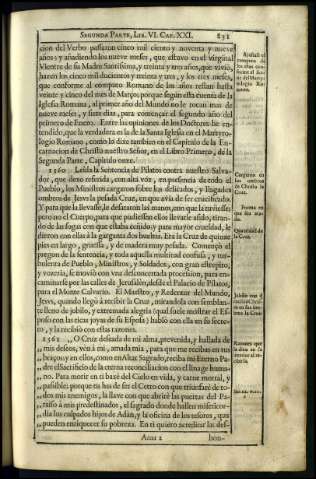 SEGUNDA PARTE, LIB. VI. CAP. XXI. 831
cion del Verbo passaron cinco mil ciento y noventa y nueve
años y añadiendo los nueve meses, que estuvo en el virginal
Vientre de su Madre Santissima, y treinta y tres años, que vivió,
hazen los cinco mil ducientos y treinta y tres, y los tres meses,
que conforme al computo Romano de los años restan hasta
veinte y cinco del mes de Março; porque segun esta cuenta de la
Iglesia Romana, al primer año del Mundo no le tocan mas de
nueve meses, y siete dias, para començar el segundo año del
primero de Enero. Entre las opiniones de los Doctores he en-
tendido, que la verdadera es la de la Santa Iglesia en el Martyro-
logio Romano, como lo dixe tambien en el Capitulo de la En-
carnacion de Christo nuestro Señor, en el Libro Primero, de la
Segunda Parte, Capitulo onze.
1360 Leída la Sentencia de Pilatos contra nuestro Salva-
dor, que dexo referida, con alta voz, en presencia de todo el
Pueblo, los Ministros cargaron sobre los delicados, y llagados
ombros de Jesvs la pesada Cruz, en que avia de ser crucificado.
Y para que la llevasse le desataron las manos, con que la tuviesse;
pero no el Cuerpo, para que pudiessen ellos llevarle asido, tiran-
do de las sogas con que estaba ceñido; y para mayor crueldad, le
dieron con ellas à la garganta dos bueltas. Era la Cruz de quinze
pies en largo, gruessa, y de madera muy pesada. Començò el
pregon de la sentencia, y toda aquella multitud confusa, y tur-
bulenta de Pueblo, Ministros, y Soldados, con gran estrepito,
y vozeria, se moviò con vna desconcertada procession, para en-
caminarse por las calles de Jerusalèn, desde el Palacio de Pilatos,
para el Monte Calvario. El Maestro, y Redentor del Mundo
Jesvs, quando llegò à recibir la Cruz, mirandola con semblan-
te lleno de jubilo, y extremada alegria (qual suele mostrar el Es-
poso con las ricas joyas de su Esposa) hablò con ella en su secre-
to, y la recibiò con estas razones.
1361 O Cruz deseada de mi alma, prevenida, y hallada de
mis deseos, vèn à mi, amada mia, para que me recibas en tus
braços, y en ellos, como en Altar Sagrado, reciba mi Eterno Pa-
dre el Sacrificio de la eterna reconciliacion con el linage huma-
no. Para morir en ti baxè del Cielo en vida, y carne mortal, y
passible; porque tu has de ser el Cetro con que triunfarè de to-
dos mis enemigos, la llave con que abrirè las puertas del Pa-
raiso à mis predestinados, el sagrado donde hallen misericor-
dia los culpados hijos de Adàn, y la oficina de los tesoros, que
pueden enriquecer su pobreza. En ti quiero acreditar las des-
Aaaa 2 hon-
Cargaron en
los ombros
de Christo la
Cruz.